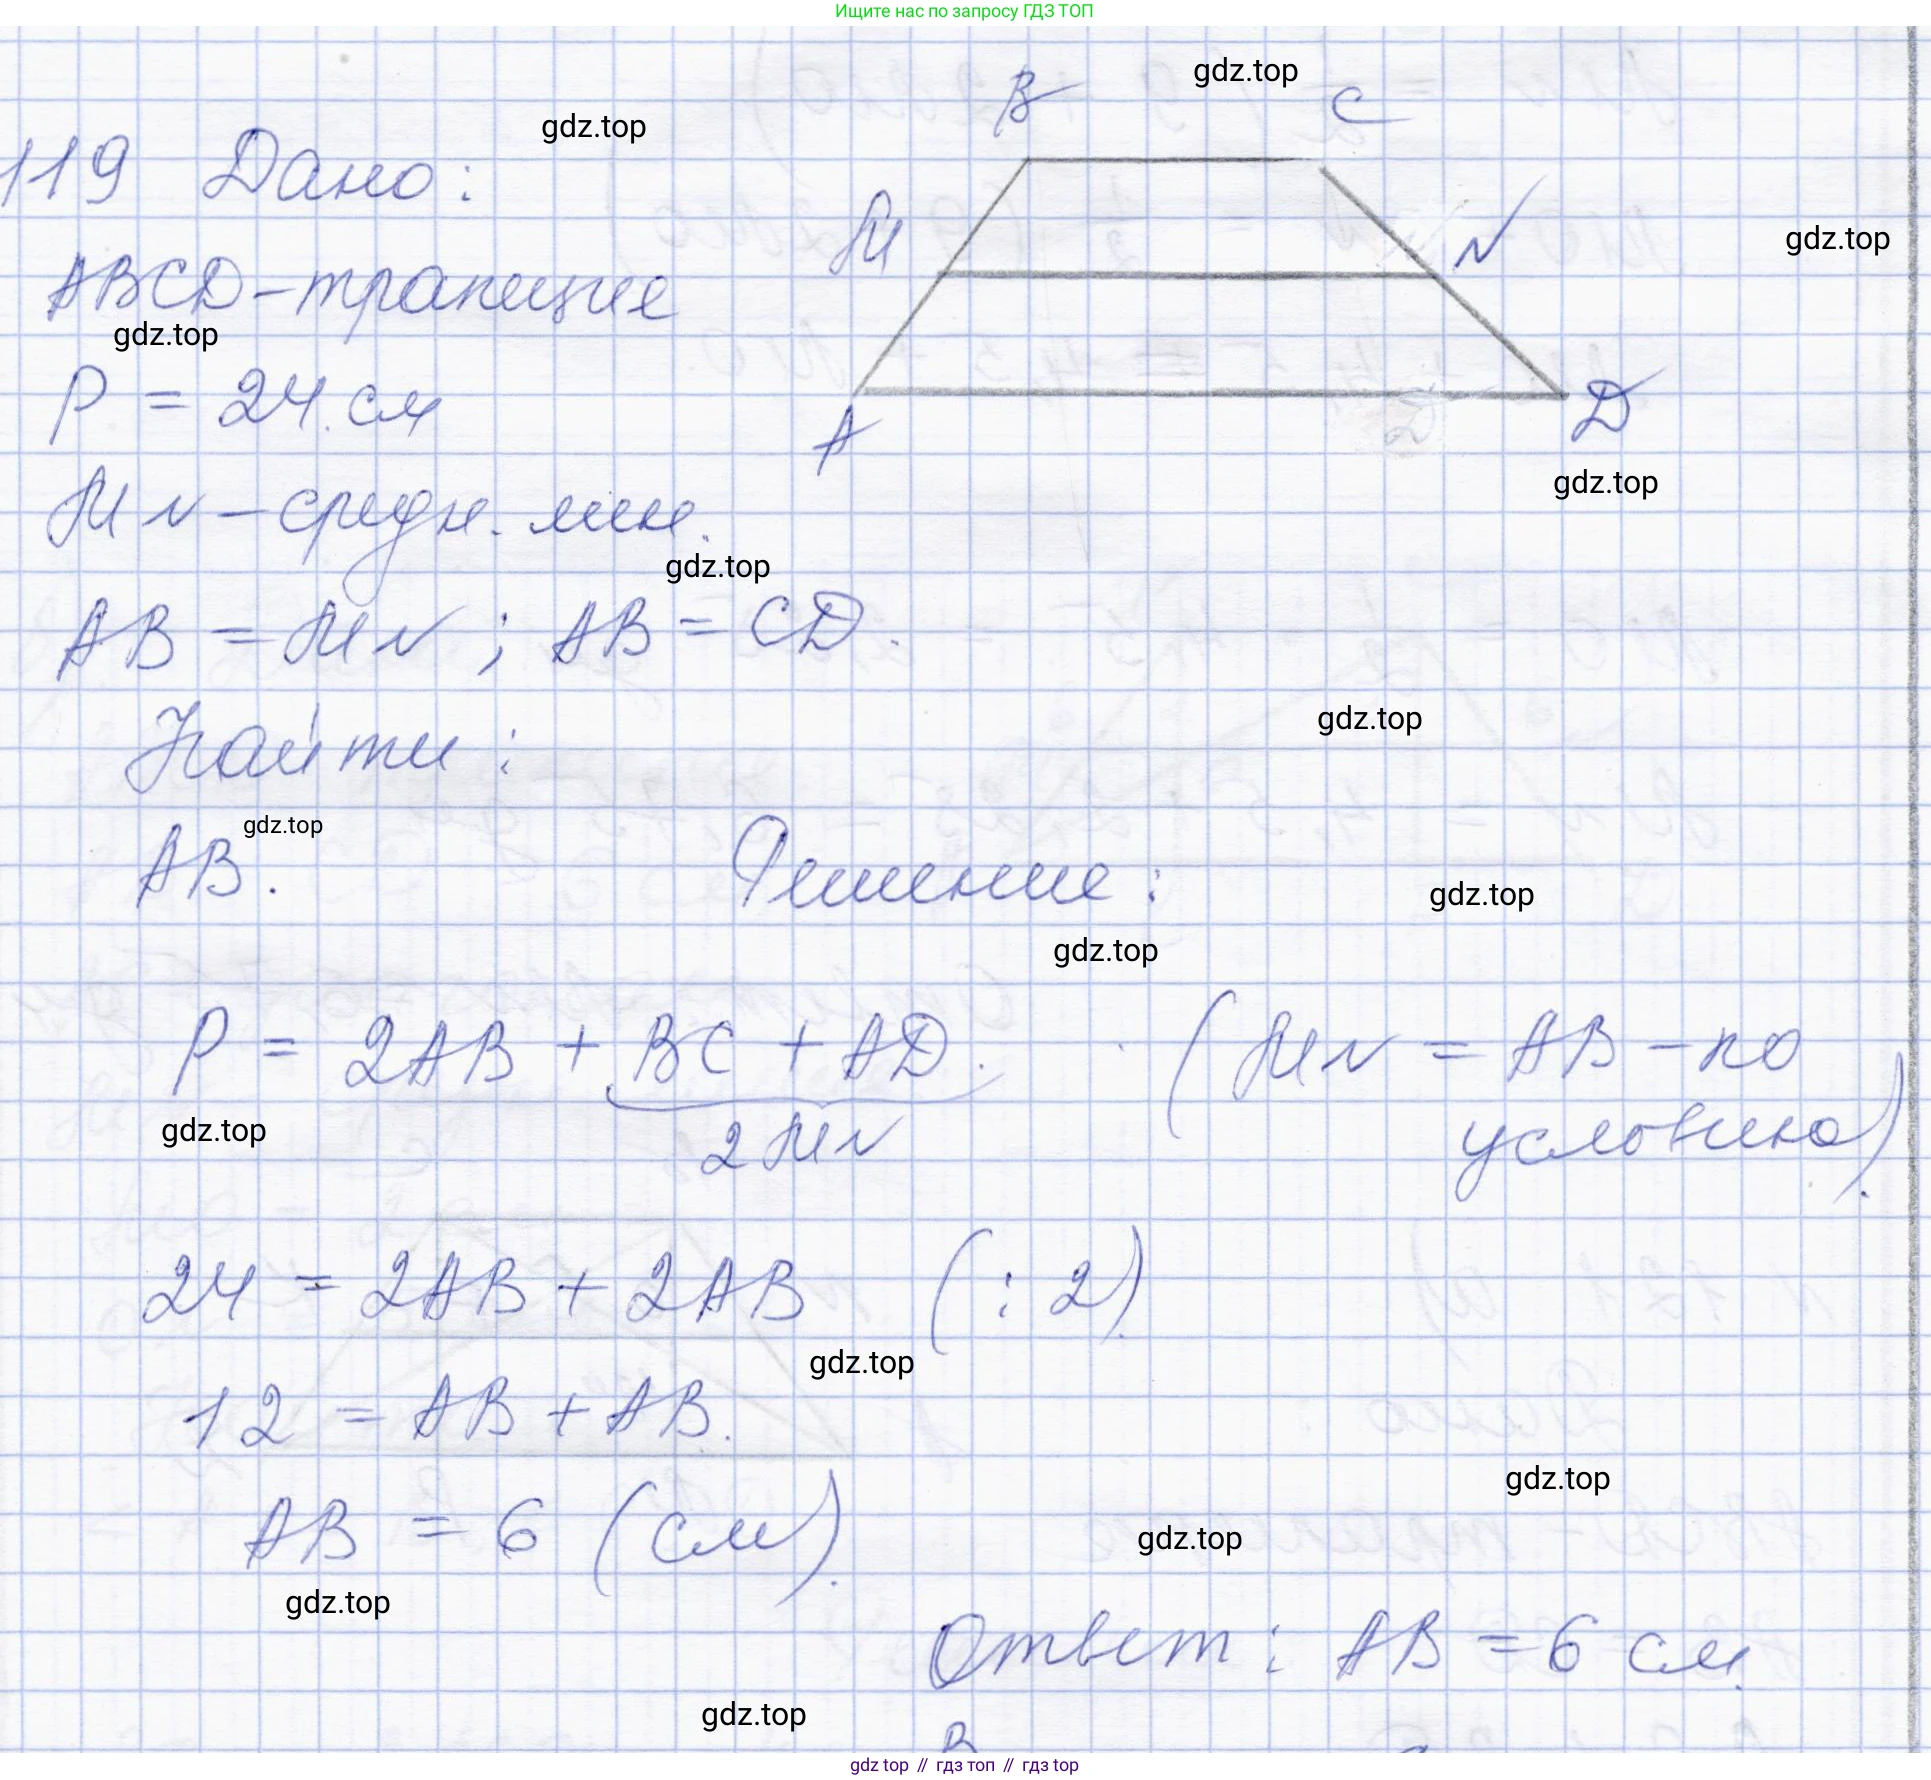 Ищите нас по запросу ГДЗ ТОП
gdz.top
B C
gdz.top
119 Дано:
M N
gdz.top
ABCD - трапеция
gdz.top
P = 24 см
A D
gdz.top
MN - средн. лин.
gdz.top
AB = MN ; AB = CD.
gdz.top
Найти :
gdz.top
AB.
Решение :
gdz.top
gdz.top
P = 2AB + BC + AD. (MN = AB - по
условию).
gdz.top
2 MN
24 = 2AB + 2AB (: 2).
gdz.top
12 = AB + AB.
gdz.top
AB = 6 (см).
gdz.top
gdz.top
Ответ : AB = 6 см.
gdz.top
B
gdz top // гдз топ // гдз top